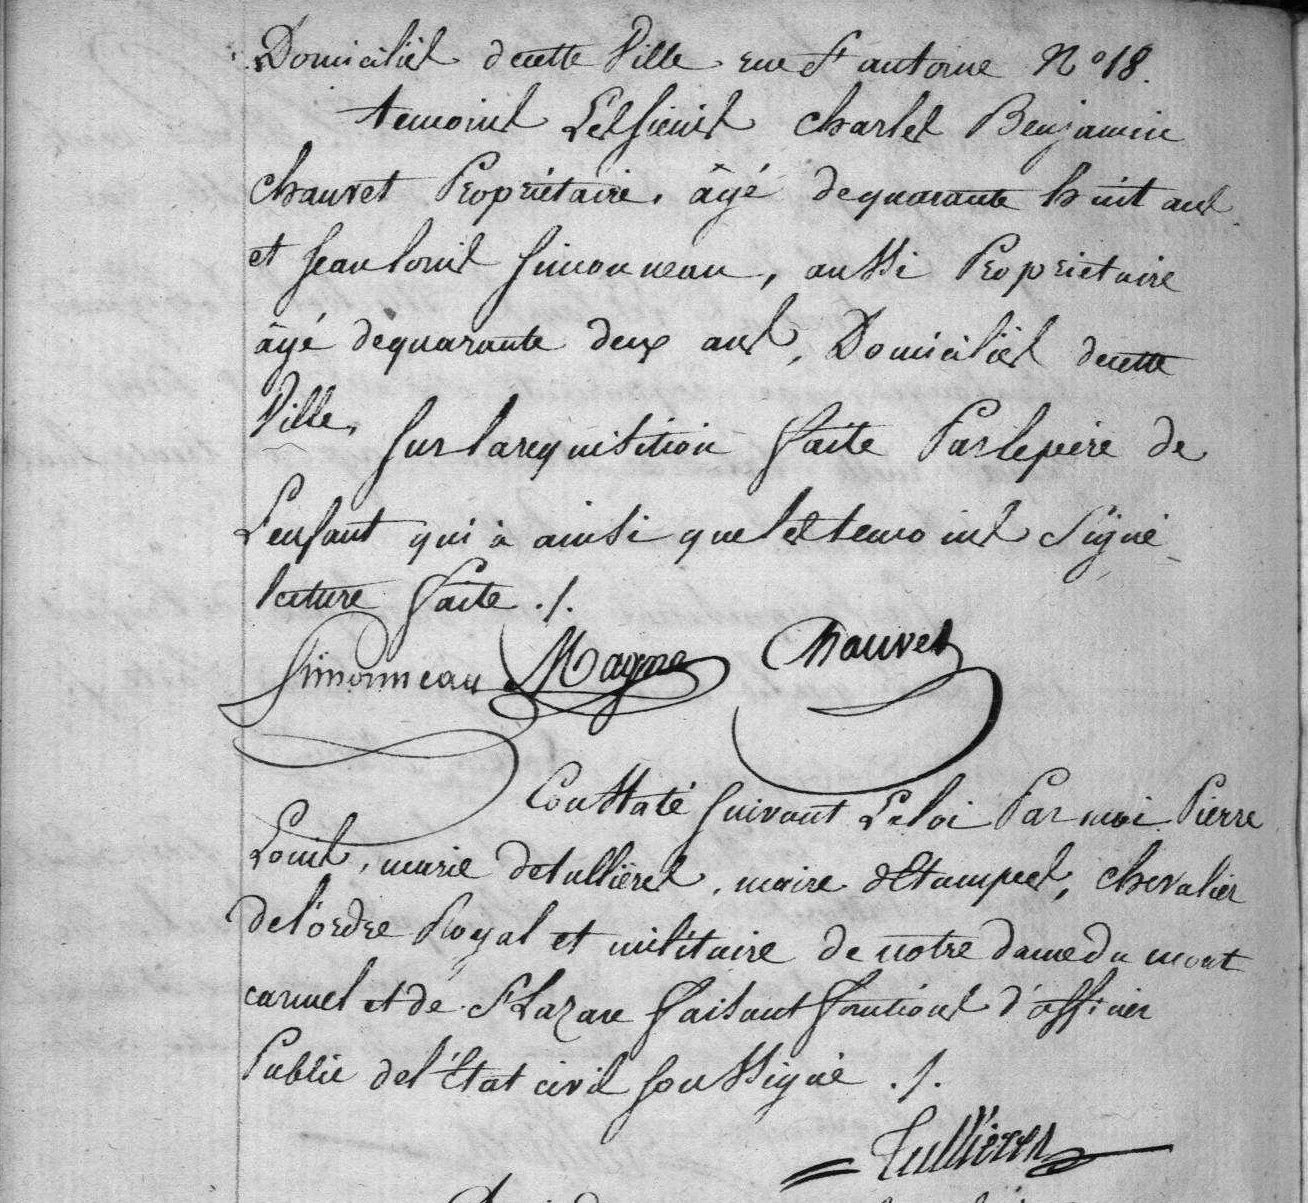 Domiciliés decette Ville rue St antoine No 18.
temoins Lessieurs Charles Benjamin
Chauvet Propriétaire, âgé dequarante huit ans
et Jean louis Simonneau, aussi Propriétaire
âgé dequarante deux ans, Domiciliés decette
Ville,
Sur larequisition faite Parlepère de
L'enfant qui à ainsi queles temoins Signé
lecture faite ./.
Simonneau Magne Chauvet
Constaté suivant Laloi Par moi Pierre
Louis, marie detullières, maire d'Etampes, chevalier
del'ordre Royal et militaire de notre dame du mont
carmel et de St Lazare faisant fonctions d'officier
Public del'Etat civil soussigné ./.
Tullières